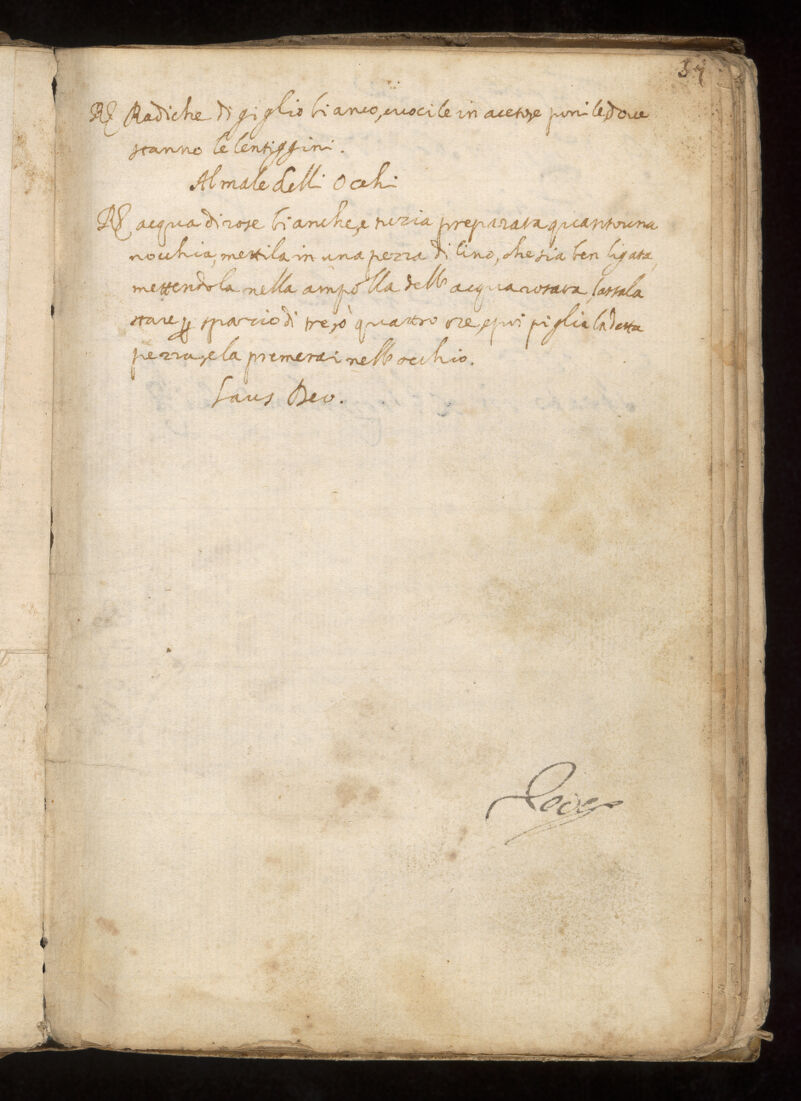 37
R Radiche di giglio bianco, cuocile in aceto, e ponile, doue
stanno le lentiggini.
Al male delli Occhi
R acqua di rose bianche, e tuzia preparata quanto una
nocchia, mettila in una pezza di lino, che sia ben ligata,
mettendola nella ampolla dell' acqua rosata, lassala
stare p spazzio di tre, ò quattro ore, e poi piglia la detta
pezza, e la premerai nell' occhio.
Laus Deo.